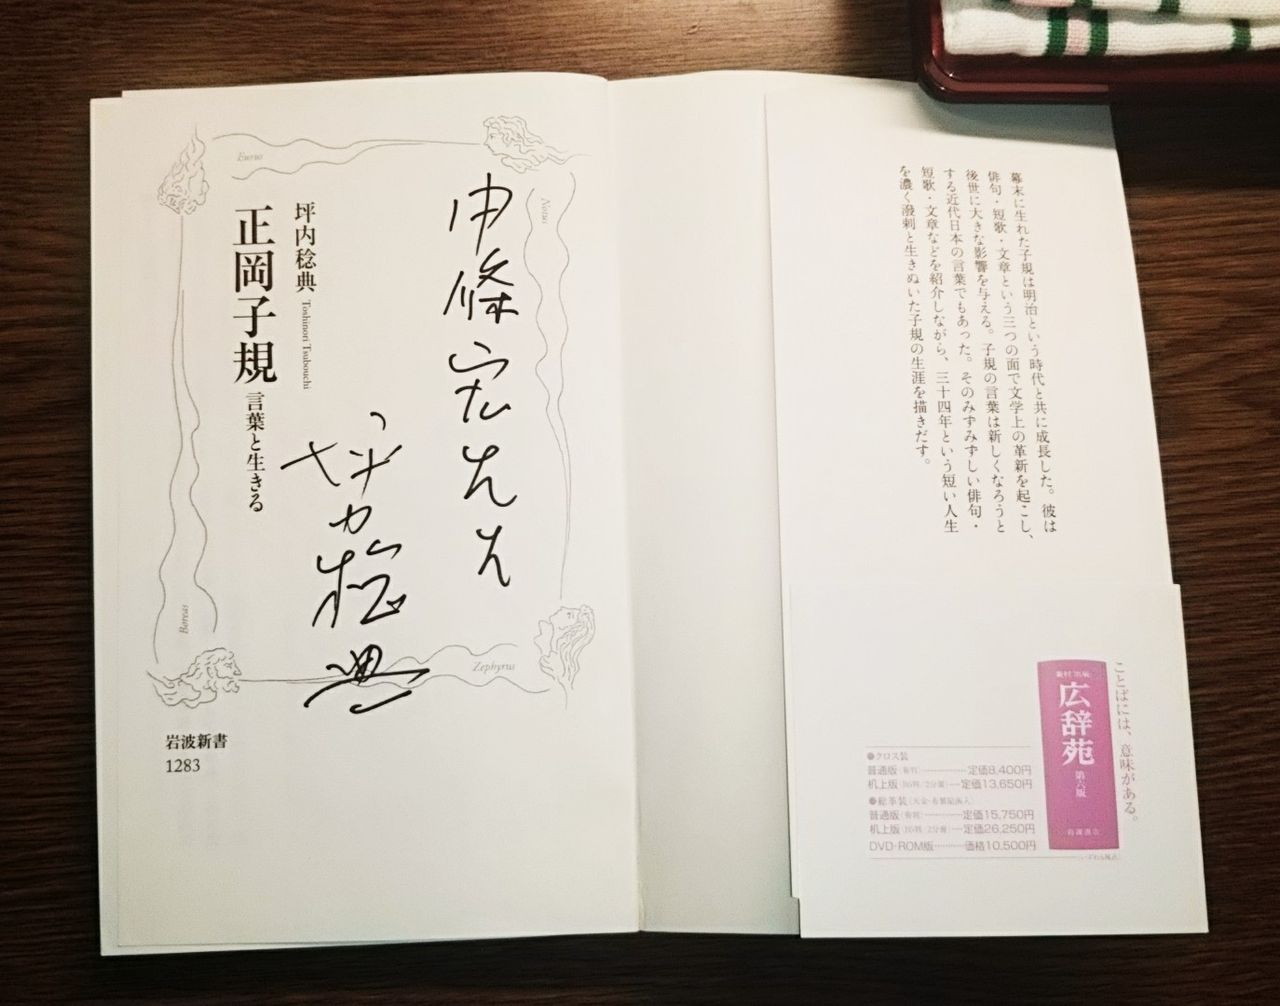 幕末に生れた子規は明治という時代と共に成長した。彼は
俳句・短歌・文章という三つの面で文学上の革新を起こし、
後世に大きな影響を与える。子規の言葉は新しくなろうと
する近代日本の言葉でもあった。そのみずみずしい俳句・
短歌・文章などを紹介しながら、三十四年という短い人生
を濃く潑剌と生きぬいた子規の生涯を描きだす。
ことばには、意味がある。
新村出編
広辞苑
第六版
岩波書店
●クロス装
普通版(菊判)…………定価8,400円
机上版(B5判/2分冊)…定価13,650円
●総革装(天金・布製貼函入)
普通版(菊判)…………定価15,750円
机上版(B5判/2分冊)…定価26,250円
DVD-ROM版…………価格10,500円
Eurus
Notus
Boreas
Zephyrus
坪内稔典 Toshinori Tsubouchi
正岡子規 言葉と生きる
坪内稔典
岩波新書
1283